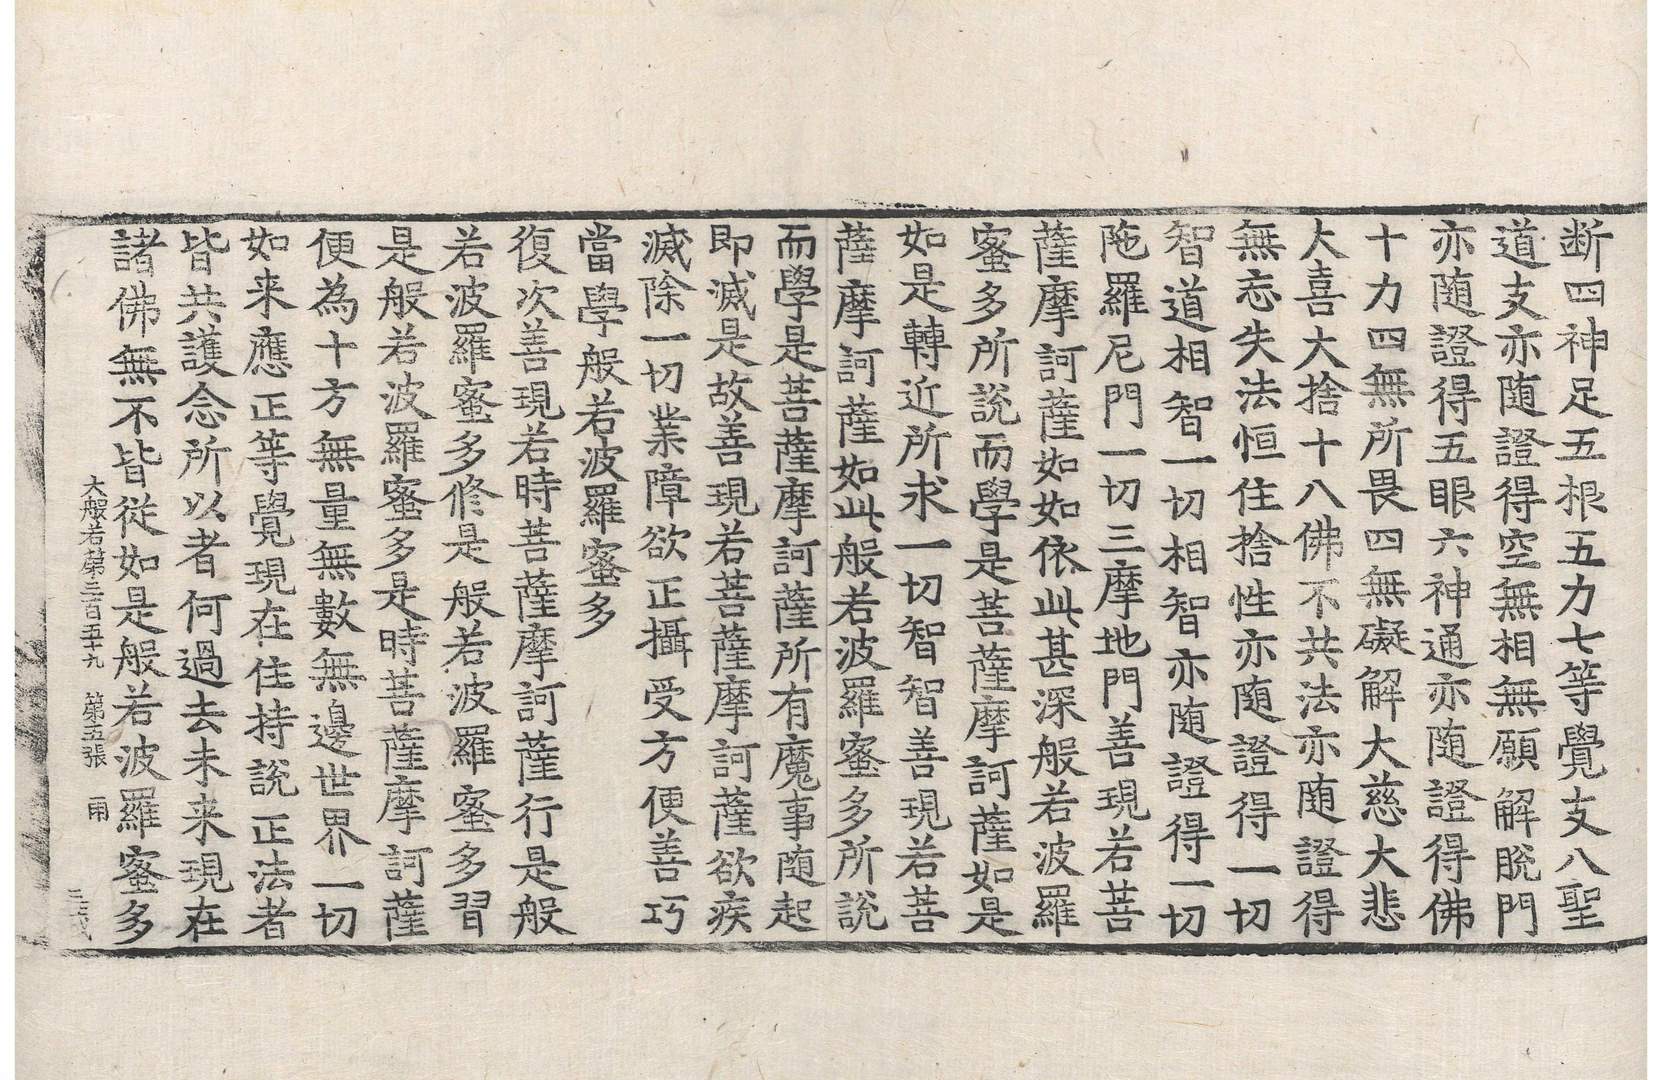 断四神足五根五力七等覺支八聖
道支亦随證得空無相無願解脫門
亦随證得五眼六神通亦随證得佛
十力四無所畏四無礙解大慈大悲
大喜大捨十八佛不共法亦随證得
無忘失法恒住捨性亦随證得一切
智道相智一切相智亦随證得一切
陁羅尼門一切三摩地門善現若菩
薩摩訶薩如如依此甚深般若波羅
蜜多所說而學是菩薩摩訶薩如是
如是轉近所求一切智智善現若菩
薩摩訶薩如此般若波羅蜜多所說
而學是菩薩摩訶薩所有魔事随起
即滅是故善現若菩薩摩訶薩欲疾
滅除一切業障欲正攝受方便善巧
當學般若波羅蜜多
復次善現若時菩薩摩訶薩行是般
若波羅蜜多修是般若波羅蜜多習
是般若波羅蜜多是時菩薩摩訶薩
便為十方無量無數無邊世界一切
如来應正等覺現在住持說正法者
皆共護念所以者何過去未来現在
諸佛無不皆從如是般若波羅蜜多
大般若第三百五十九 第五張